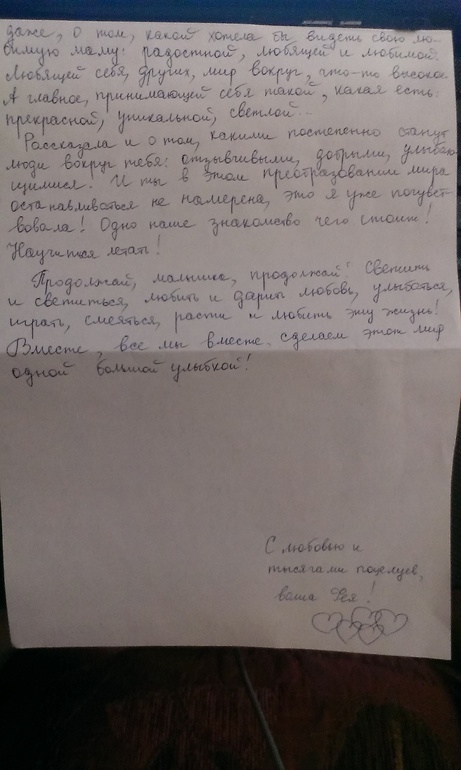 даже, о том, какой хотела бы видеть свою лю-
бимую маму: радостной, любящей и любимой.
Любящей себя, других, мир вокруг, что-то высокое.
А главное, принимающей себя такой, какая есть:
прекрасной, уникальной, светлой...
Рассказала и о том, какими постепенно станут
люди вокруг тебя: отзывчивыми, добрыми, улыбаю-
щимися. И ты в этом преобразовании мира
останавливаться не намерена, это я уже почувст-
вовала! Одно наше знакомство чего стоит!
Научиться летать!
Продолжай, малышка, продолжай! Светить
и светиться, любить и дарить любовь, улыбаться,
играть, смеяться, расти и любить эту жизнь!
Вместе, все мы вместе сделаем этот мир
одной большой улыбкой!
С любовью и
тысячами поцелуев,
ваша Фея!